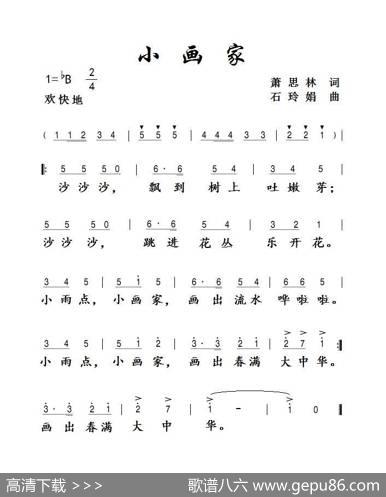 小画家
1=♭B 2/4
萧思林 词
欢快地
石玲娟 曲
( 1 1 2 3 4 | 5 5 5 | 1 2 3 4 3 3 | 2 2 1 )
𝄆 5 5 5 0 | 6· 6 5 4 | 3 4 5
沙沙沙， 飘到 树上 吐嫩芽；
5 5 5 0 | 6· 6 5 4 | 3 2 1
沙沙沙， 跳进 花丛 乐开花。
3 4 5 | 5 1 5 | 6· 6 5 4 | 3 4 5
小雨点， 小画家， 画出 流水 哗啦啦。
3 4 5 | 5 5 4 | 3· 3 2 1 | 2 7 1 𝄇
小雨点， 小画家， 画出 春满 大中华。
3· 3 2 1 | 2 7 | 1 - | 1 0 ‖
画出 春满 大中 华。
高清下载 >>>
歌谱八六 www.gepu86.com